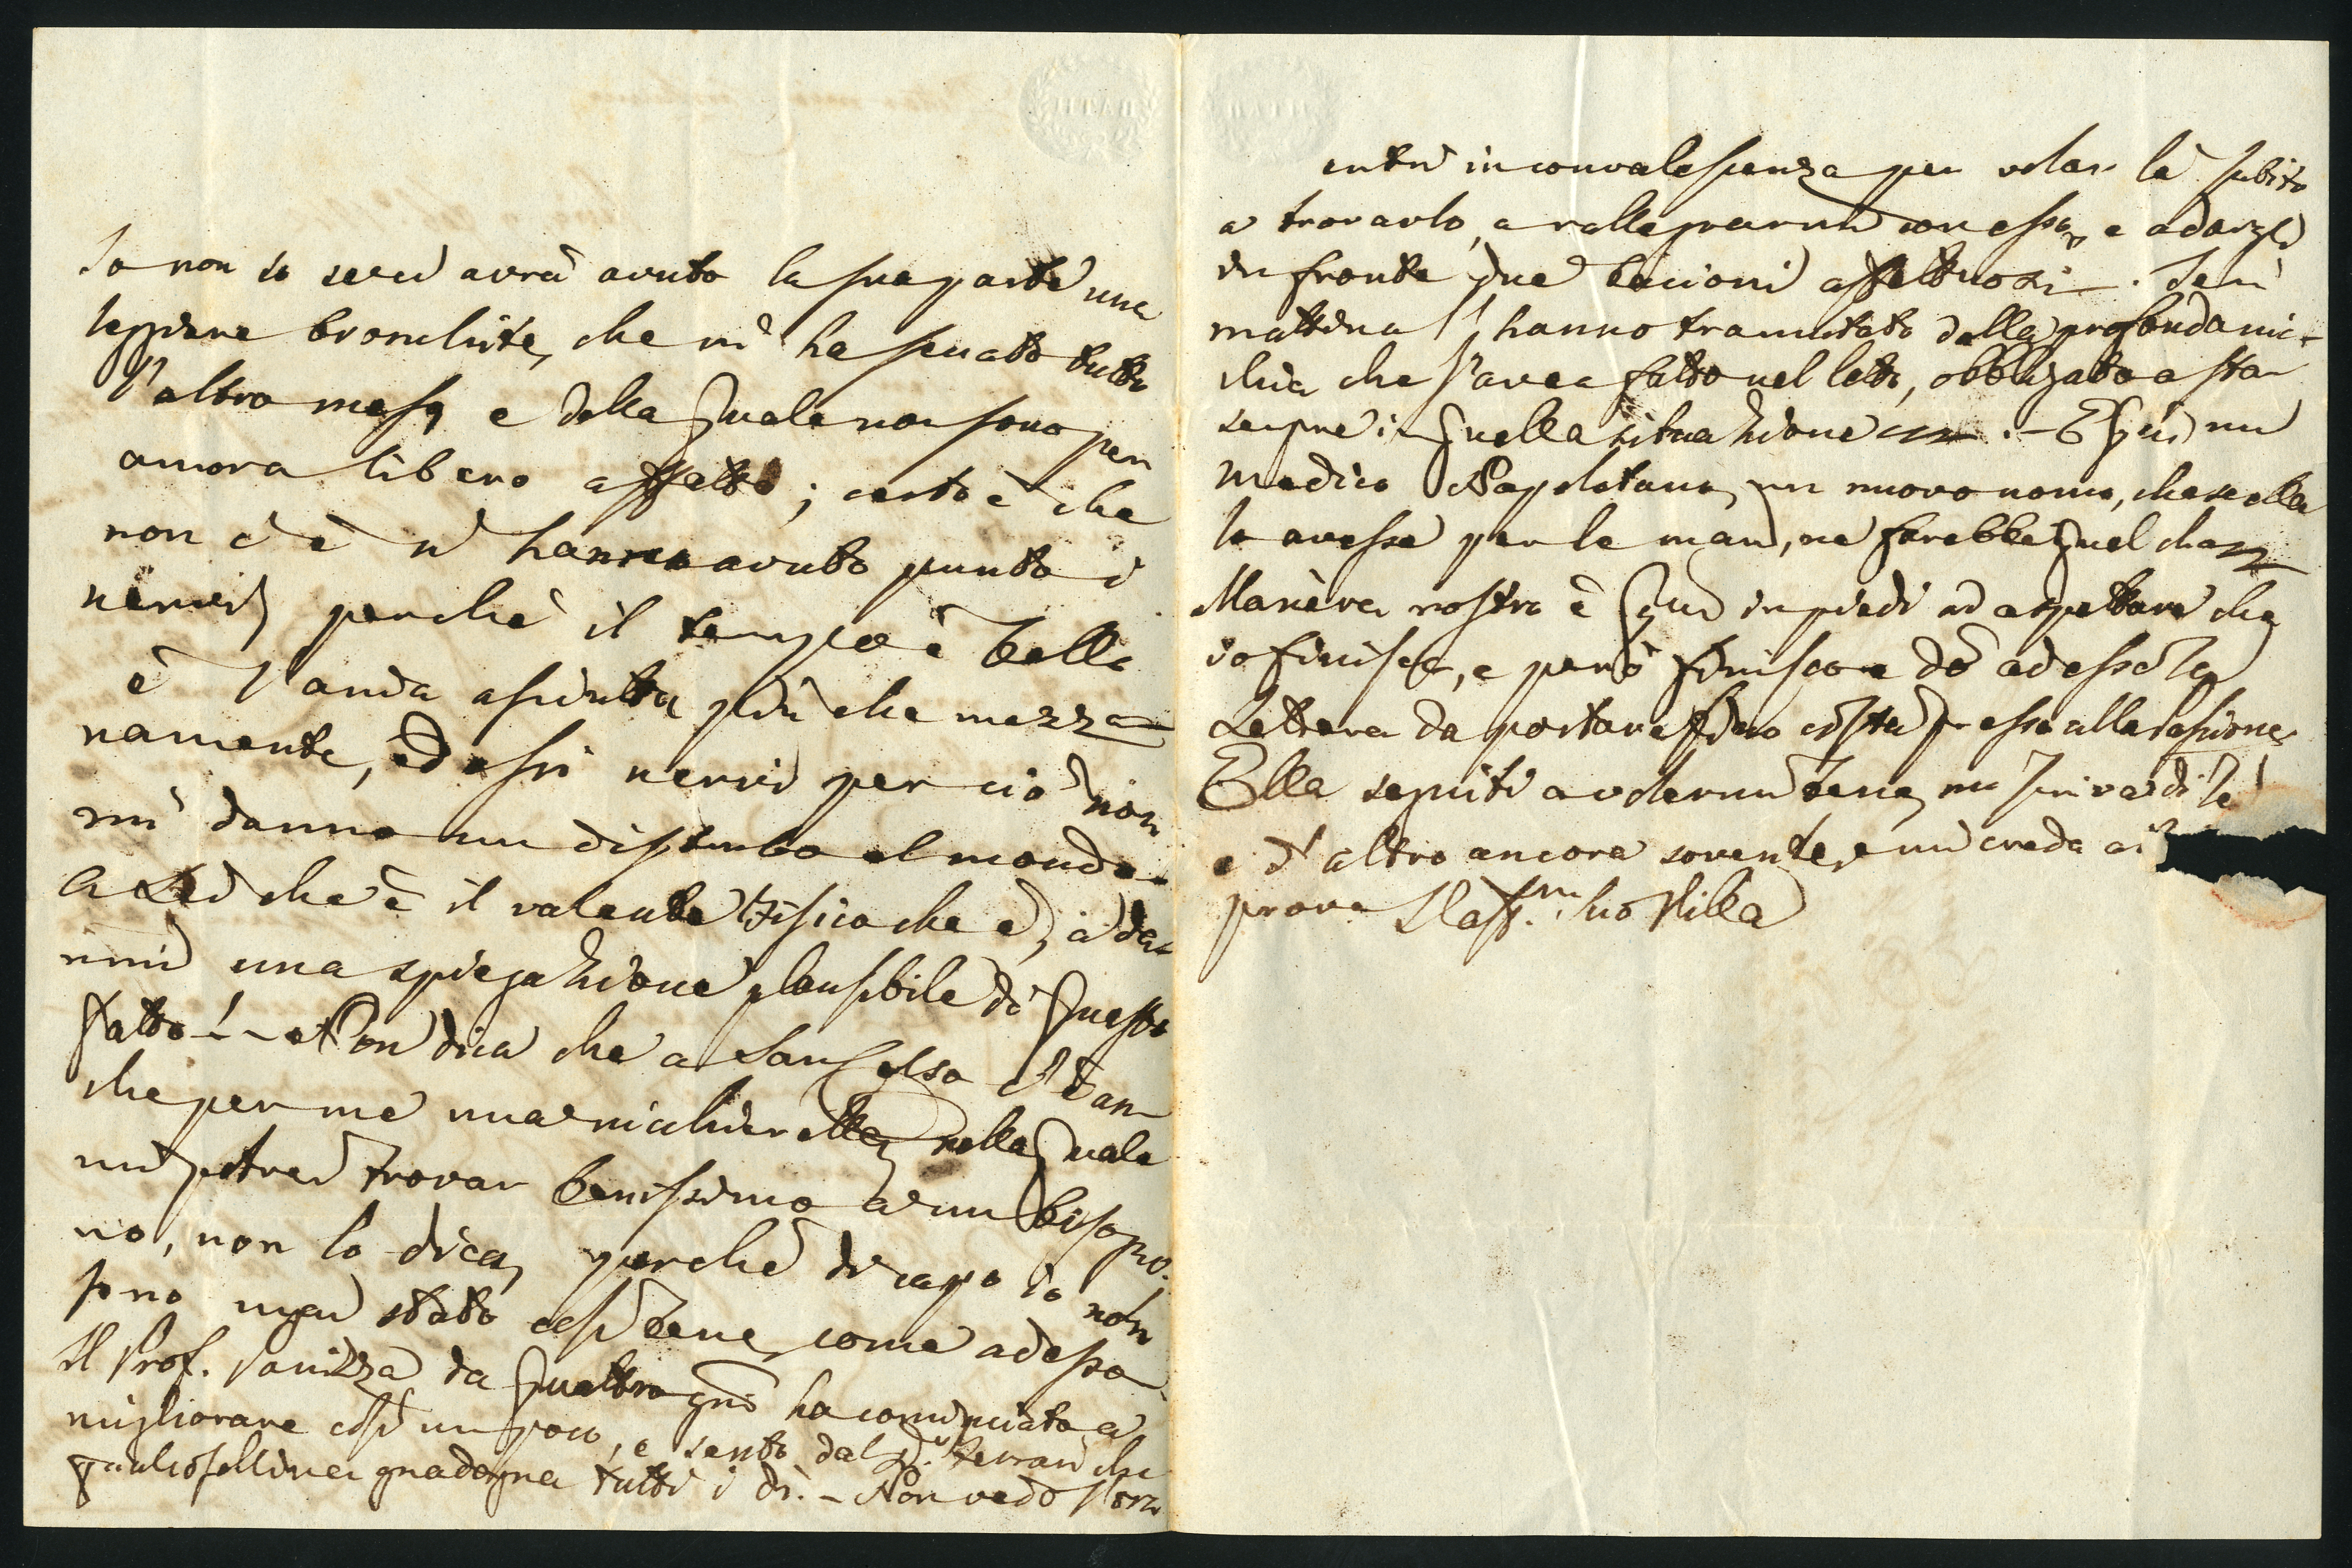 Io non so se ci avrà avuto la sua parte una
leggiera bronchite, che mi ha seccato tutto
l'altro mese, e della quale non sono per
ancora libero affatto; certo è che
non ci è n' hanno avuto punto i
nervi, perchè il tempo è bello
è l'anda asciutta più che mezza-
namente, ed essi nervi per ciò non
mi danno un disturbo al mondo.
A Lei che è il valente Fisico che è, a dar-
mi una spiegazione plausibile di questo
fatto! - Non dica che a San Celso c'è an-
che per me una nicchierella, nella quale
mi potrei trovar benissimo a un biso-
gno, non lo dica, perchè di capo io non
sono mai stato così bene, come adesso.
Il Prof. Panizza da quattro gni ha cominciato a
migliorare così un poco, e sento dal D.r Ferrari che
qualcosellina guadagna tutti i dì. - Non vedo l'ora
entri in convalescenza per volar là subito
a trovarlo, a rallegrarmi con esso, e a dargli
in fronte due bacioni affettuosi. Ieri
mattina l'hanno tramutato dalla profonda nic-
chia che s'avea fatto nel letto, obbligato a star
sempre in quella situazione. - È qui un
medico Napoletano, un nuovo nomo, che se ella
lo avesse per le mani, ne farebbe quel che
Manèra nostro è qui in piedi ad aspettare che
io finisca, e però finisco e do adesso la
Lettera da portare fino costà presso alla Passione.
Ella seguiti a volermi bene, mi scriva di lè
e d'altro ancora sovente, e mi creda a
prova L'aff.mo Suo Pilla